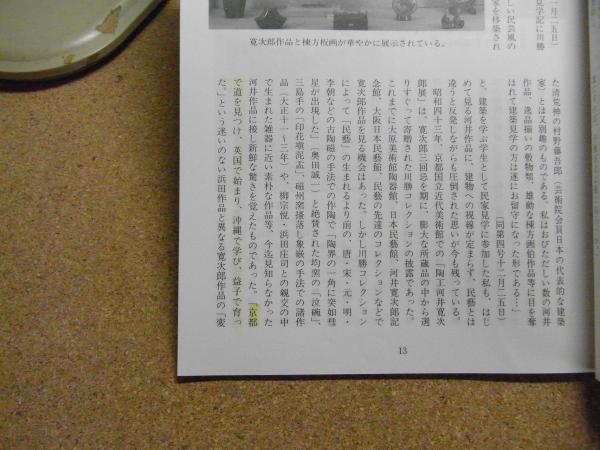 寛次郎作品と棟方板画が華やかに展示されている。
月二五日）
見学記に川勝
しい民芸風の
家を移築され
た清荒神の村野藤吾郎（芸術院会員日本の代表的な建築
家）とは又別趣のものである。私はおびただしい数の河井
作品、逸品揃いの敷物類、雄動な棟方画伯作品等に目を奪
はれて建築見学の方は遂にお留守になった形である…」
（同第四号十二月二五日）
と。建築を学ぶ学生として民家見学に参加した私も、はじ
めて見る河井作品に、建物への視線が定まらず、民藝とは
違うと反発しながらも圧倒された思いが今も残っている。
昭和四十三年、京都国立近代美術館での「陶工河井寛次
郎展」は、寛次郎三回忌を期に、膨大な所蔵品の中から選
りすぐって寄贈された川勝コレクションの披露であった。
これまでに大原美術館陶器館、日本民藝館、河井寛次郎記
念館、大阪日本民藝館、民藝の先達のコレクションなどで
寛次郎作品を見る機会はあった。しかし川勝コレクション
によって「民藝」の生まれるより前の、唐・宋・元・明・
李朝などの古陶磁の手法での作陶で「陶界の一角に突如彗
星が出現した」（奥田誠一）と絶賛された均窯の「泣碗」、
三島手の「印花塡泥盂」、磁州窯掻落し象嵌の手法での諸作
品（大正十一〜三年）や、柳宗悦・浜田庄司との親交の中
で生まれた雑器に近い素朴な作品等、今迄見知らなかった
河井作品に接し新鮮な驚きを覚えたものであった。「京都
で道を見つけ、英国で始まり、沖縄で学び、益子で育っ
た。」という迷いのない浜田作品と異なる寛次郎作品の「変
13